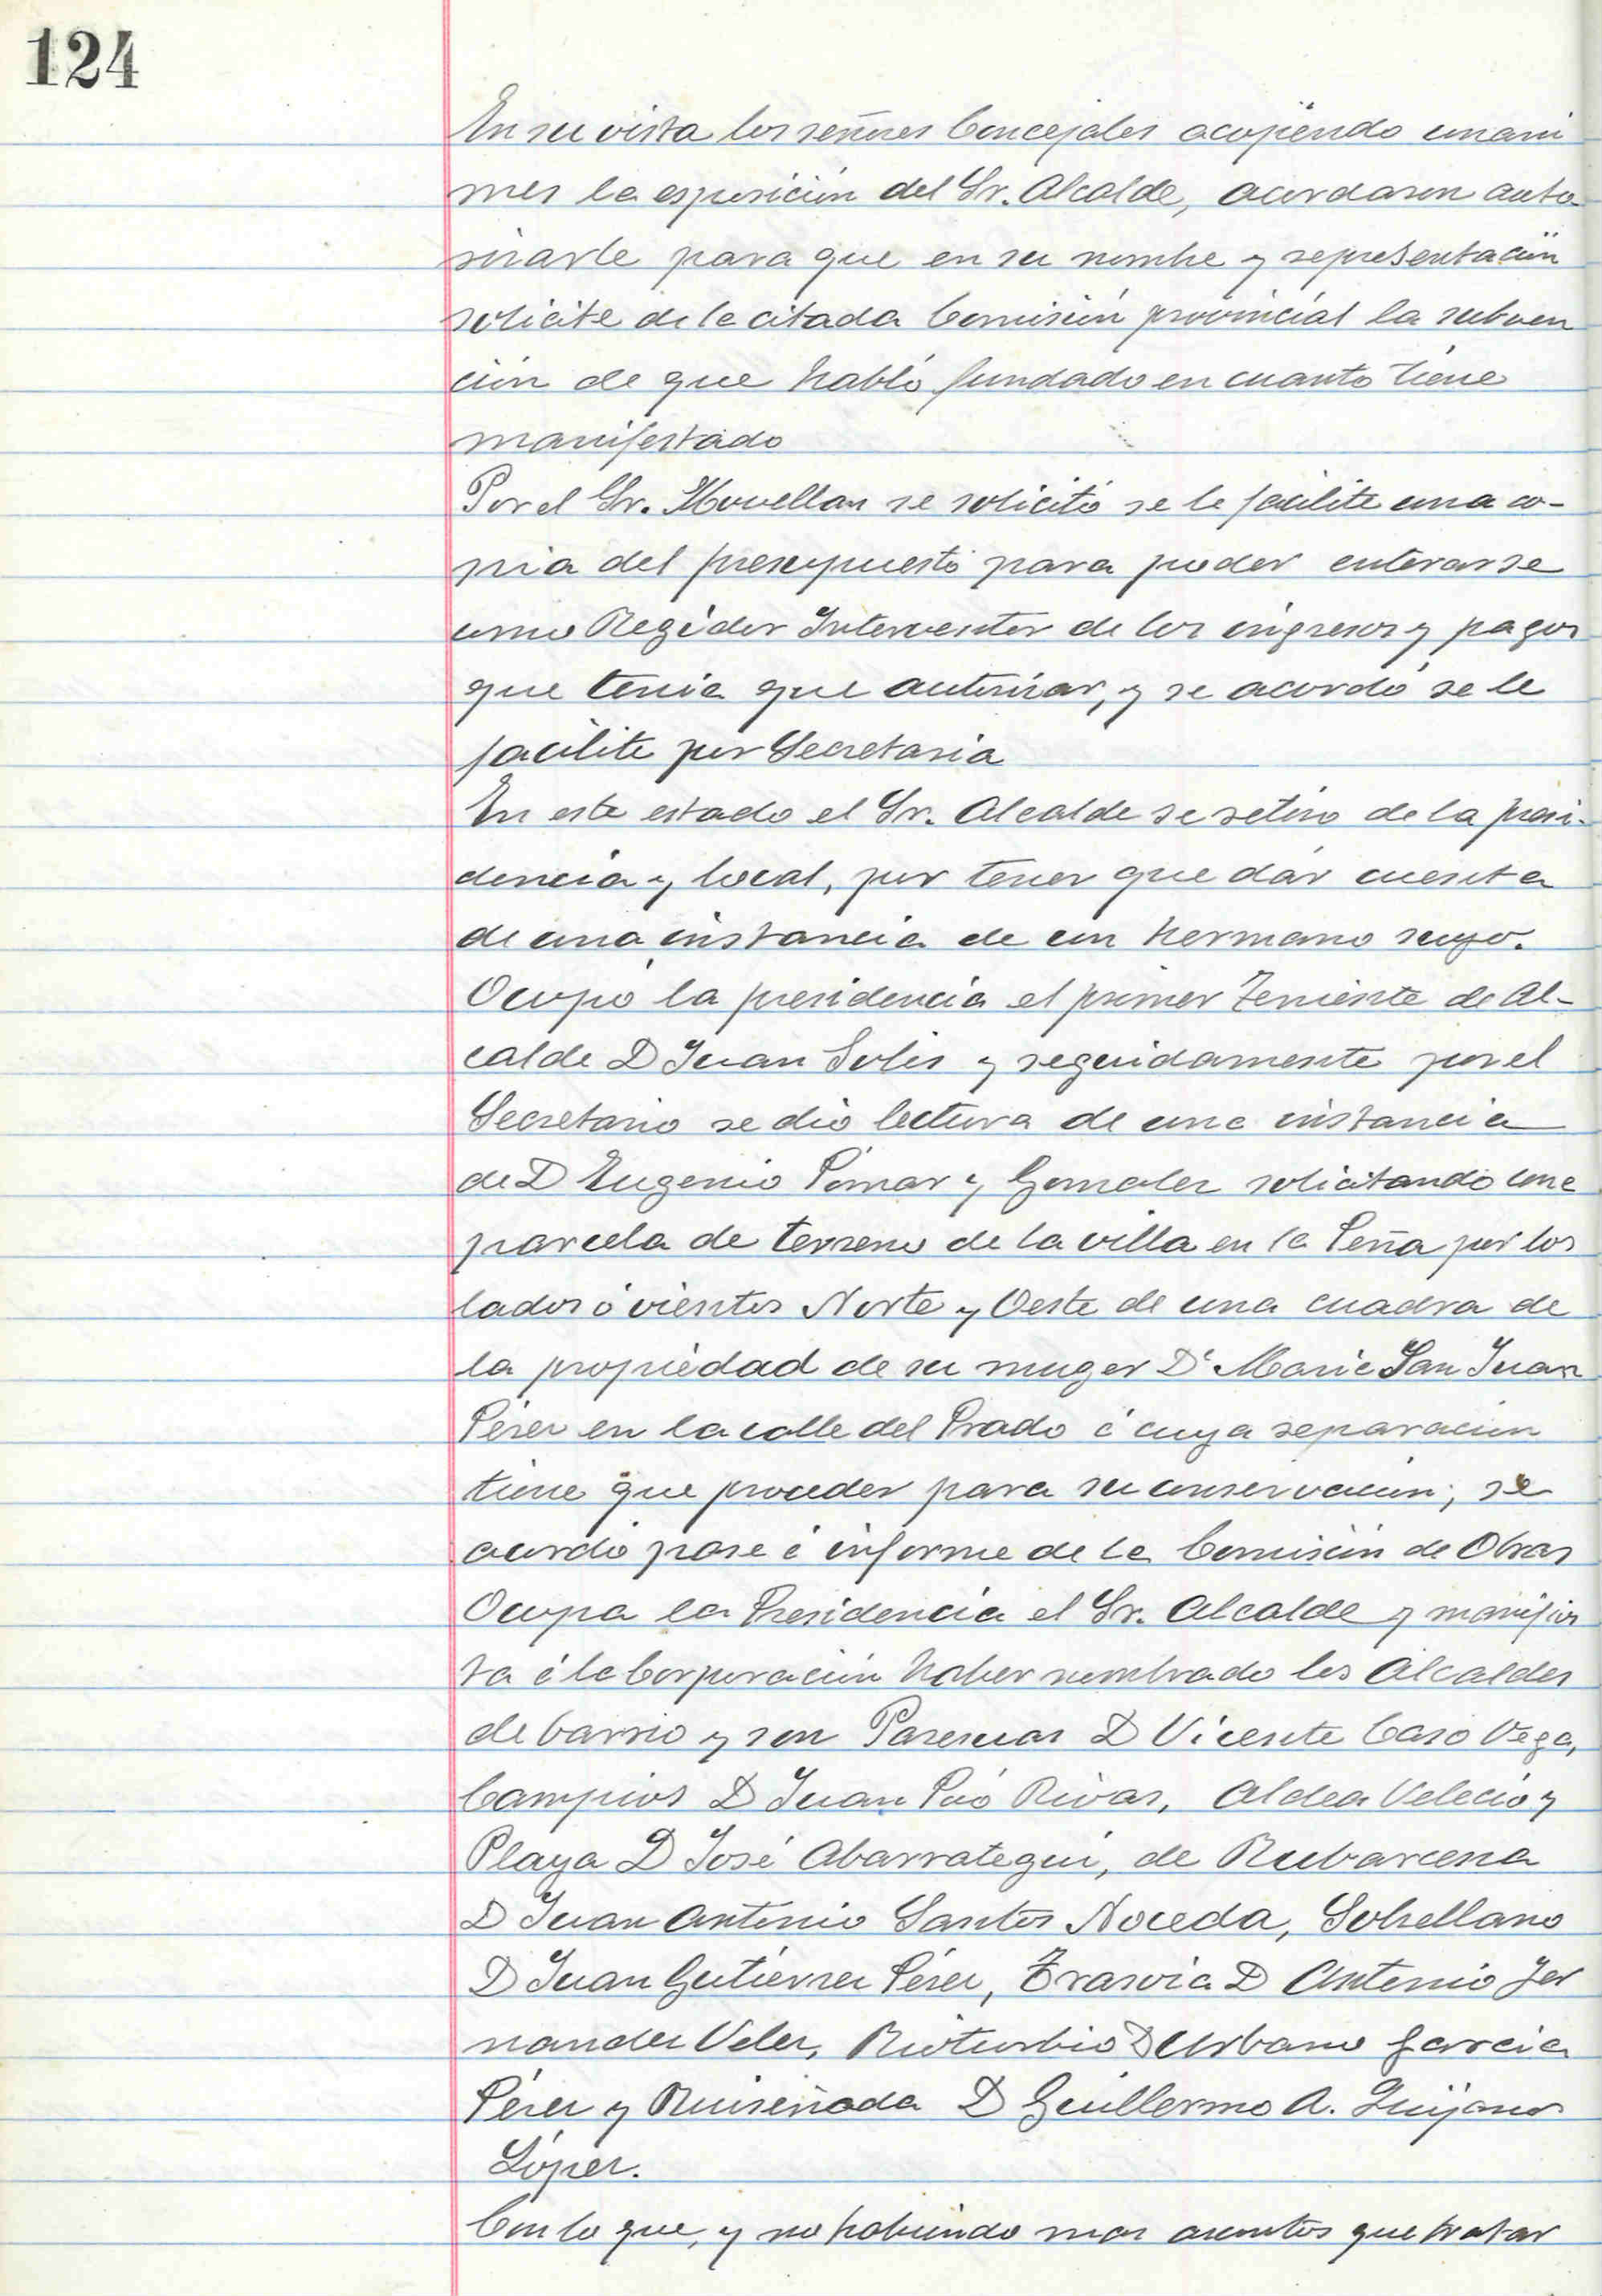 124
En su vista los señores Concejales acojiendo unani
mes la esposición del Sr. Alcalde, acordaron auto
rizarle para que en su nombre y representación
solicite de la citada Comisión provincial la subven
ción de que habló fundado en cuanto tiene
manifestado
Por el Sr. Movellan se solicitó se le facilite una co-
pia del presupuesto para poder enterarse
como Regidor Interventor de los ingresos y pagos
que tenia que autorizar, y se acordó se le
facilite por Secretaria
En este estado el Sr. Alcalde se retiro de la presi-
dencia y local, por tener que dar cuenta
de una instancia de un hermano suyo.
Ocupó la presidencia el primer Teniente de Al-
calde D Juan Solis y seguidamente por el
Secretario se dió lectura de una instancia
de D Eugenio Pomar y Gonzalez solicitando una
parcela de terreno de la villa en la Peña por los
lados ó vientos Norte y Oeste de una cuadra de
la propiedad de su muger Dª Maria San Juan
Pérez en la calle del Prado á cuya reparacion
tiene que proceder para su conservacion; se
acordó pase á informe de la Comisión de Obras
Ocupa la Presidencia el Sr. Alcalde y manifies
ta á la Corporación haber nombrado los Alcaldes
de barrio y son Pasenas D Vicente Caso Vega,
Campios D Juan Pió Rivas, Aldea Velecio y
Playa D José Abarrategui, de Rubarcena
D Juan Antonio Santos Noceda, Sobrellano
D Juan Gutiérrez Pérez, Trasvia D Antonio Fer
nandez Velez, Rioturbio D Urbano Garcia
Pérez y Ruiseñada D Guillermo A. Quijano
López.
Con lo que, y no habiendo mas asuntos que tratar